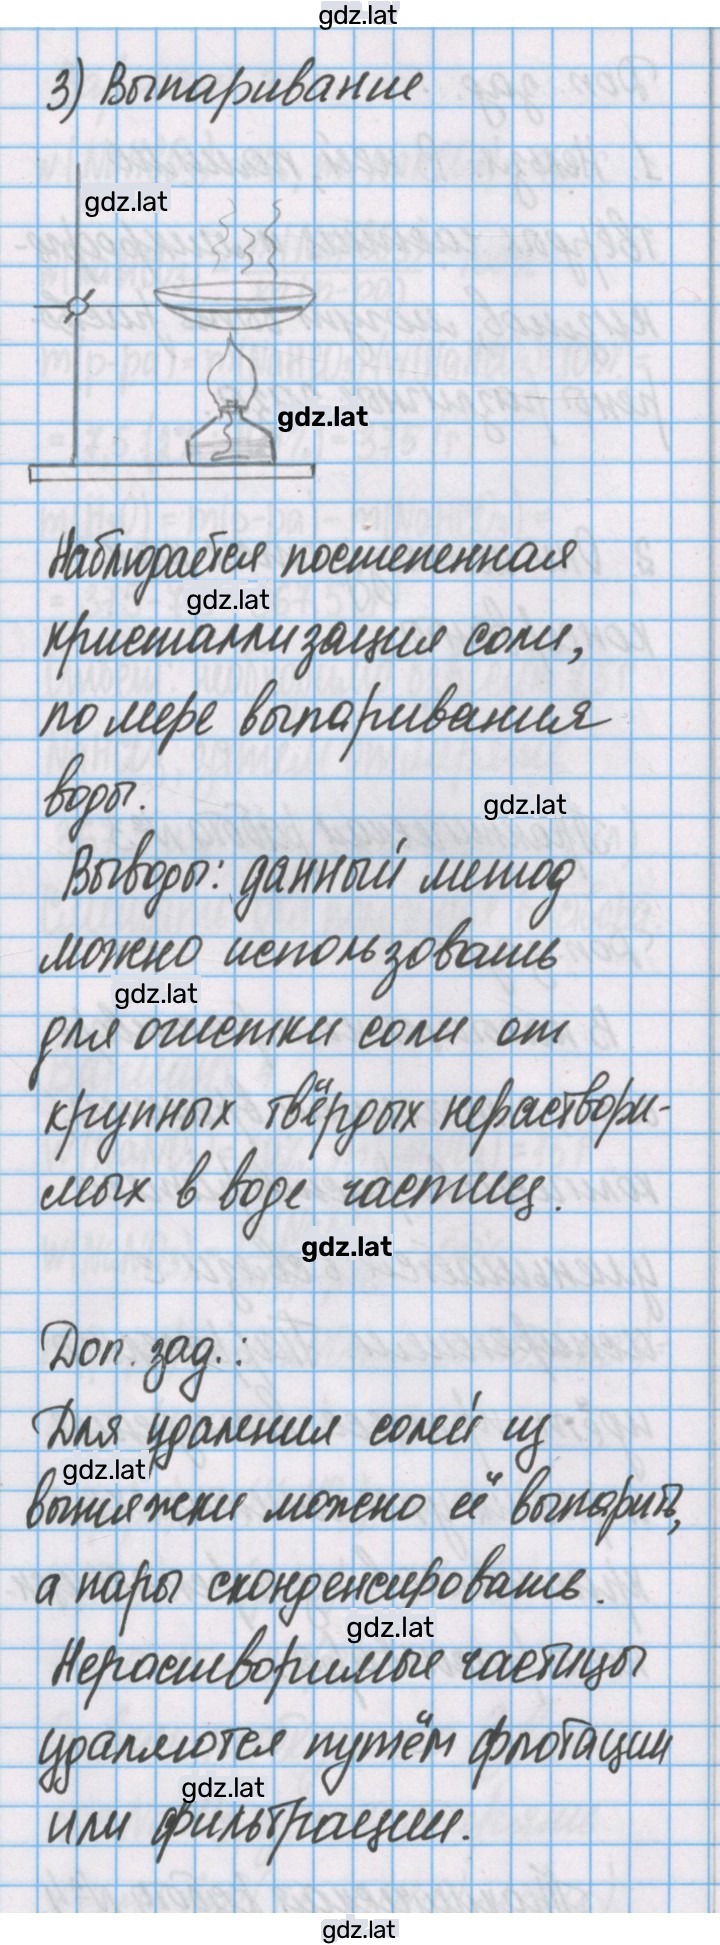 gdz.lat
3) Выпаривание
gdz.lat
gdz.lat
Наблюдается постепенная
gdz.lat
кристаллизация соли,
по мере выпаривания
воды.
gdz.lat
Выводы: данный метод
можно использовать
gdz.lat
для очистки соли от
крупных твёрдых нераствори-
мых в воде частиц.
gdz.lat
Доп. зад.:
Для удаления солей из
gdz.lat
вытяжки можно её выпарить,
а пары сконденсировать.
gdz.lat
Нерастворимые частицы
удаляются путём флотации
gdz.lat
или фильтрации.
gdz.lat